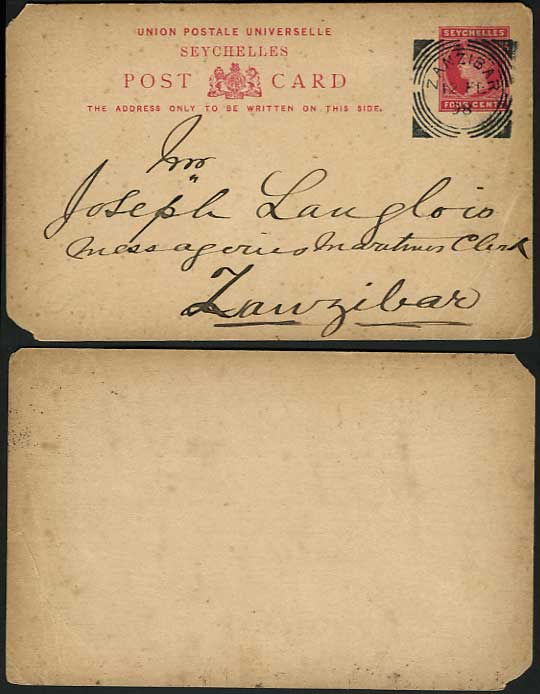 UNION POSTALE UNIVERSELLE
SEYCHELLES
POST CARD
THE ADDRESS ONLY TO BE WRITTEN ON THIS SIDE.
SEYCHELLES
FOUR CENTS
ZANZIBAR
12 FE
98
Mr
Joseph Langlois
Messageries Maritimes Clerk
Zanzibar